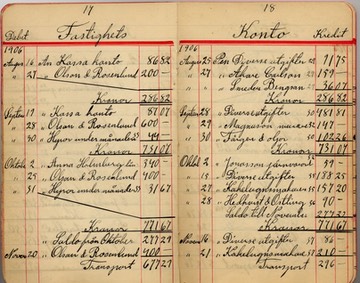 17
Debet Fastighets
1906
Augus 16 An Kassa konto 86 82
" 27 " Olson & Rosenlund 200 —
Kronor 286 82
Septem 19 " Kassa konto 87 07
" 28 " Olsan & Rosenlund 600 —
" 30 " Hyror under månaden 44
Kronor 731 07
Oktobe 2 " Anna Holmberg 340 —
" 25 " Olson & Rosenlund 400 —
" 31 " Hyror under månaden 31 67
Kronor 771 67
" Saldo från Oktober 277 29
Novem 20 " Olson & Rosenlund 400 —
Transport 677 29
18
Konto Kredit
1906
Augus 25 Per Diverse utgifter 91 75
" 27 " Carlson 159 —
" " Smeden Bengson 36 07
Kronor 286 82
Septem 28 " Diverse utgifter 481 81
" " " Magnuson
" 30 " Färger & olja 102 26
Kronor 731 07
Oktobe 2 " Jonsson 39 —
" 15 " Diverse utgifter 188 25
" 27 " Kakelugnsmakaren 157 20
" 28 " Hedkvist & Östling 90 —
Saldo till November 277 27
Kronor 771 67
Novem 16 " Diverse utgifter 86 —
" 21 " Kakelugnsmakaren 210 —
Transport 296 —